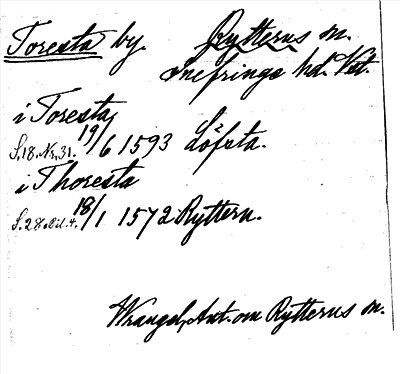 Toresta by. Rytterns sn.
Snefringe hd. Vstl.
i Toresta
S.18.Nr.31. 19/6 1593 Löfsta.
i Thoresta
S.28. Bil.4. 18/1 1572 Ryttern.
Wrangel, Ant. om Rytterns sn.